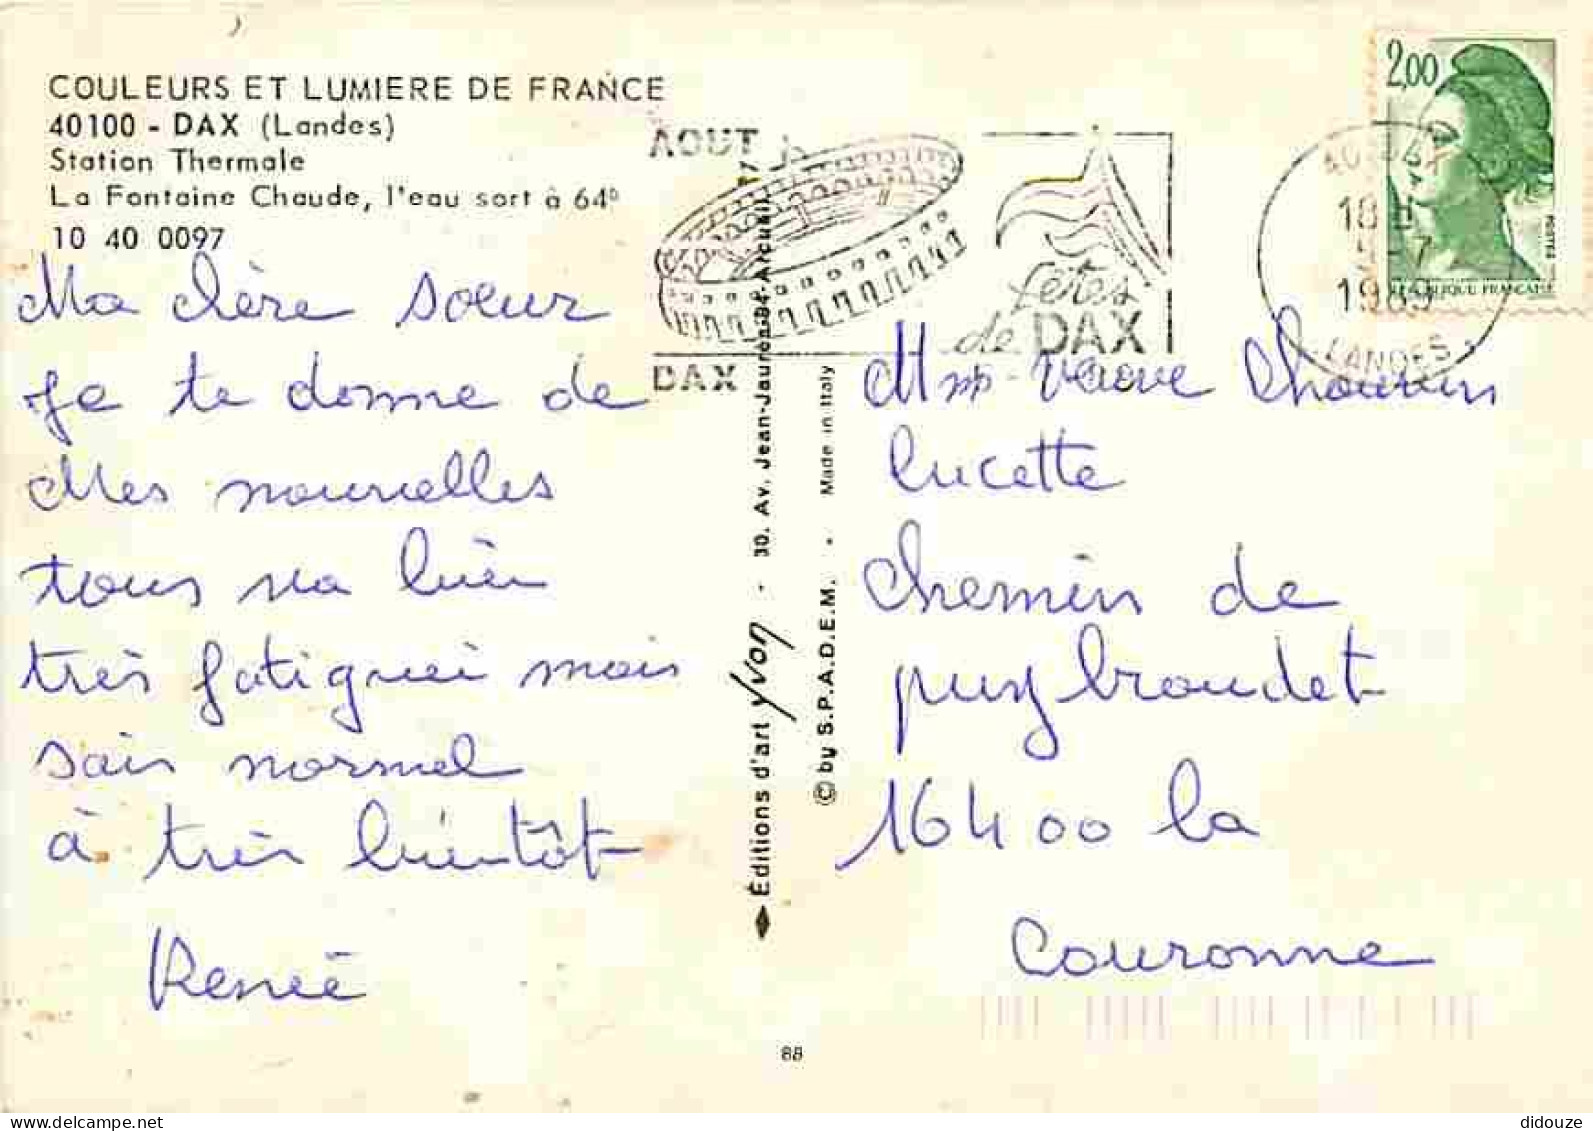 COULEURS ET LUMIERE DE FRANCE
40100 - DAX (Landes)
Station Thermale
La Fontaine Chaude, l'eau sort à 64°
10 40 0097
Ma chère soeur
Je te donne de
Mes nouvelles
tous va bien
très fatiguéi mais
sais normal
à très bientôt
Renée
AOUT
DAX
fêtes
de DAX
Éditions d'art yvon - 30, Av. Jean-Jaurès 94 Arcueil
© by S.P.A.D.E.M. • Made in Italy
2,00
POSTES
REPUBLIQUE FRANÇAISE
18 H
1989
LANDES
veuve
Lucette
chemin de
puybroudet
16400 la
Couronne
88
delcampe.net
didouze